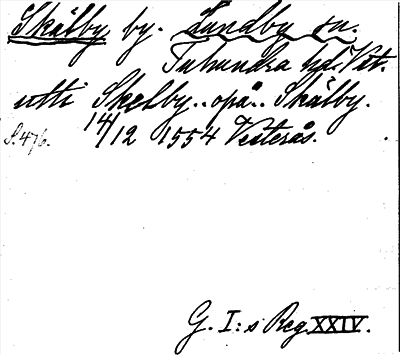 Skälby by. Lundby sn.
Tuhundra hd. Vst.
utti Skelby.. opå.. Skälby.
S. 476. 14/12 1554 Vesterås.
G. I:s Reg XXIV.